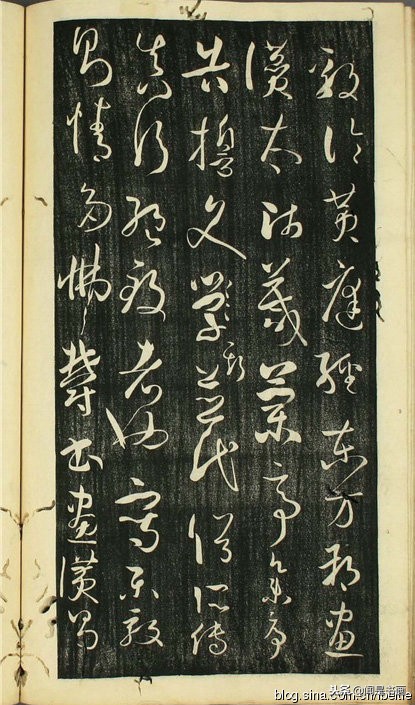 毅論黃庭經東方朔畫
讚太師箴蘭亭集序
告誓文學斯並代俗所傳
真行絕致者也寫樂毅
則情多怫鬱書畫讚則
头条 @闻是书画